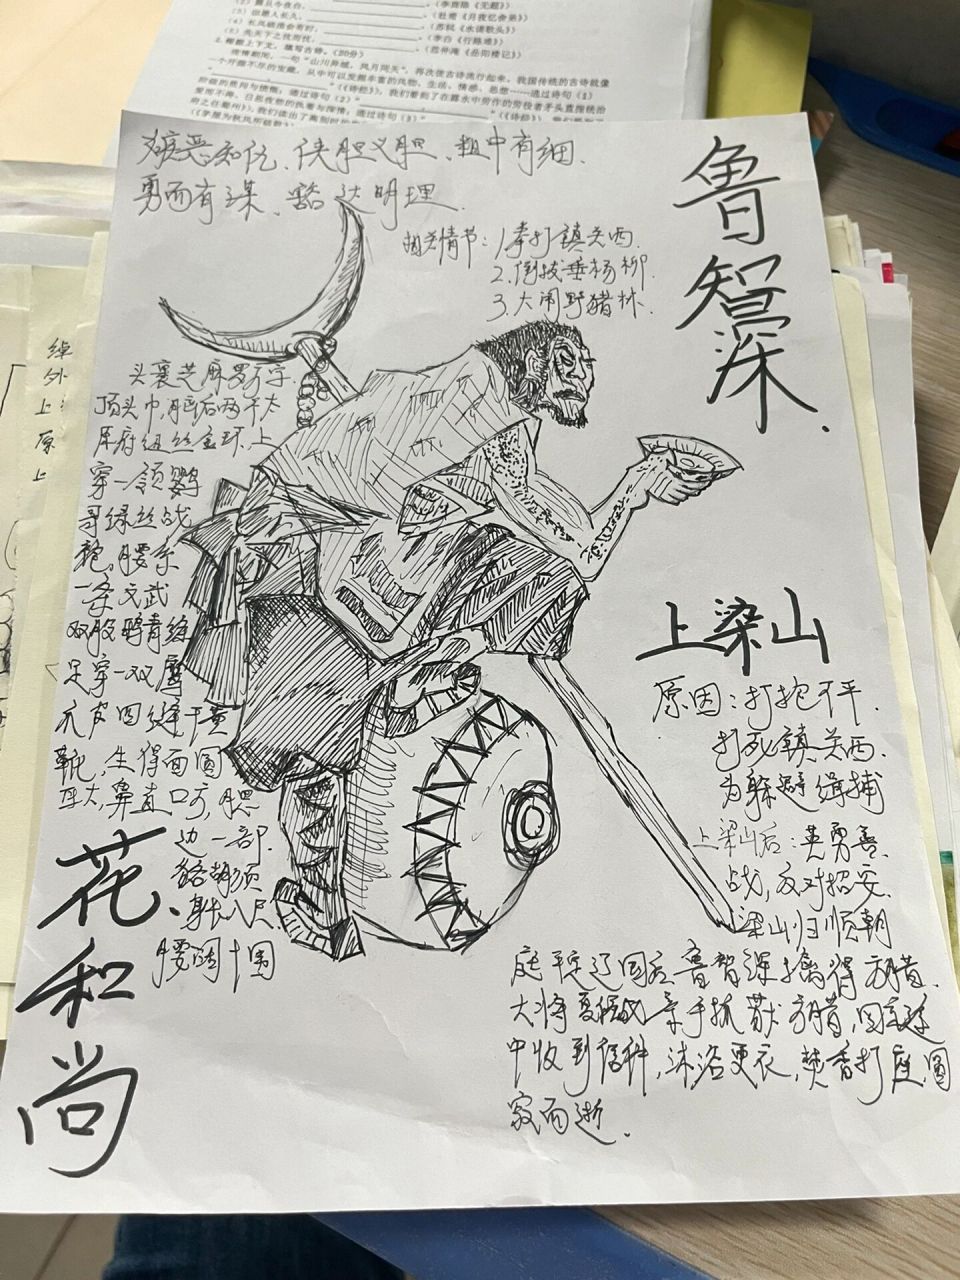 (李商隐《无题》)
(杜甫《月夜忆舍弟》)
(苏轼《水调歌头》)
(李白《行路难》)
(范仲淹《岳阳楼记》)
疾恶如仇、侠肝义胆、粗中有细、
勇而有谋、豁达明理.
鲁智深.
相关情节:1.拳打镇关西.
2.倒拔垂杨柳.
3.大闹野猪林.
头裹芝麻罗万字
顶头巾,脑后两个太
原府纽丝金环,上
穿一领鹦
哥绿丝战
袍,腰系
一条文武
双股鸦青绦
足穿一双鹰
爪皮四缝干黄
靴,生得面圆
耳大,鼻直口方,腮
边一部
络胡须
身长八尺
腰阔十围
花和尚
上梁山
原因:打抱不平.
打死镇关西.
为躲避缉捕
上梁山后:英勇善
战,反对招安.
梁山归顺朝
庭平定辽国后鲁智深擒得方腊
大将夏侯成亲手抓获方腊,回
中收到信,沐浴更衣,焚香打庭,圆
寂而逝.
绰
外
上
原
上